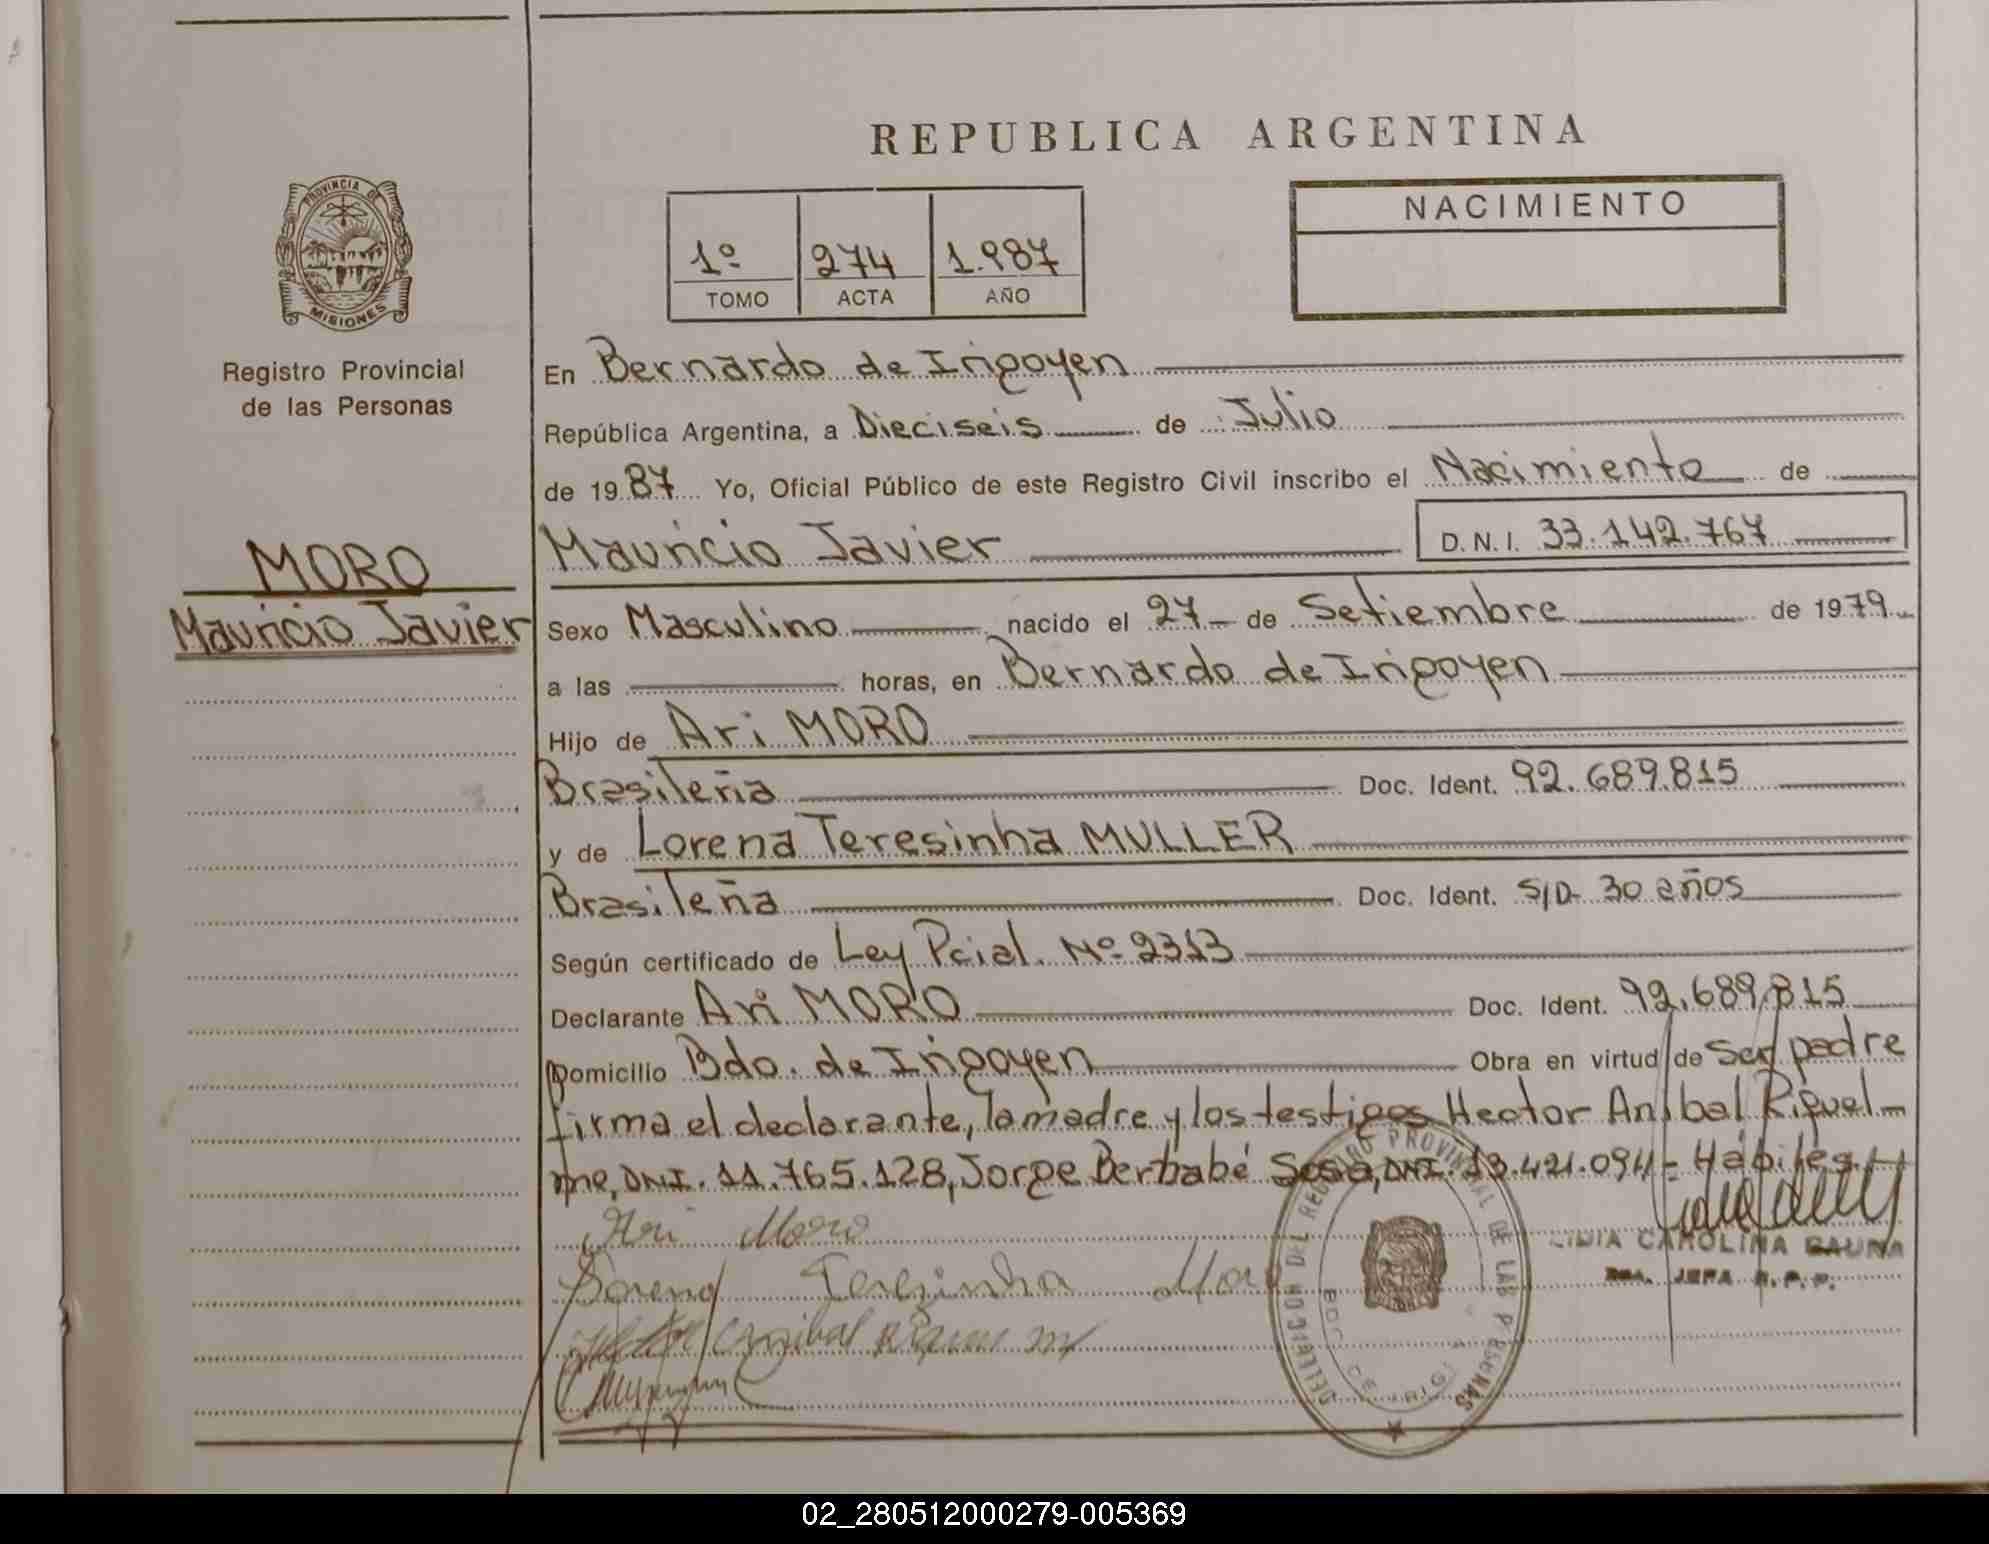 REPUBLICA ARGENTINA
PROVINCIA DE MISIONES
Registro Provincial
de las Personas
1º 274 1.987
TOMO ACTA AÑO
NACIMIENTO
En Bernardo de Irigoyen
República Argentina, a Dieciseis de Julio
de 1987 Yo, Oficial Público de este Registro Civil inscribo el Nacimiento de
MORO
Mauricio Javier
Mauricio Javier D.N.I. 33.142.767
Sexo Masculino nacido el 27 de Setiembre de 1979
a las horas, en Bernardo de Irigoyen
Hijo de Ari MORO
Brasileña Doc. Ident. 92.689.815
y de Lorena Teresinha MULLER
Brasileña Doc. Ident. S/D- 30 años
Según certificado de Ley Pcial. Nº 2313
Declarante Ari MORO Doc. Ident. 92.689.815
Domicilio Bdo. de Irigoyen Obra en virtud de Ser padre
firma el declarante, la madre y los testigos Hector Anibal Riquel-
me, DNI. 11.765.128, Jorge Berbabé Sosa, DNI. 13.421.094- Hábiles
Ari Moro
Lorena Terezinha Moro
Anibal
LIDIA CAROLINA BAUNA
JEFA R.P.P.
DELEGACION DEL REGISTRO PROVINCIAL DE LAS PERSONAS
02_280512000279-005369